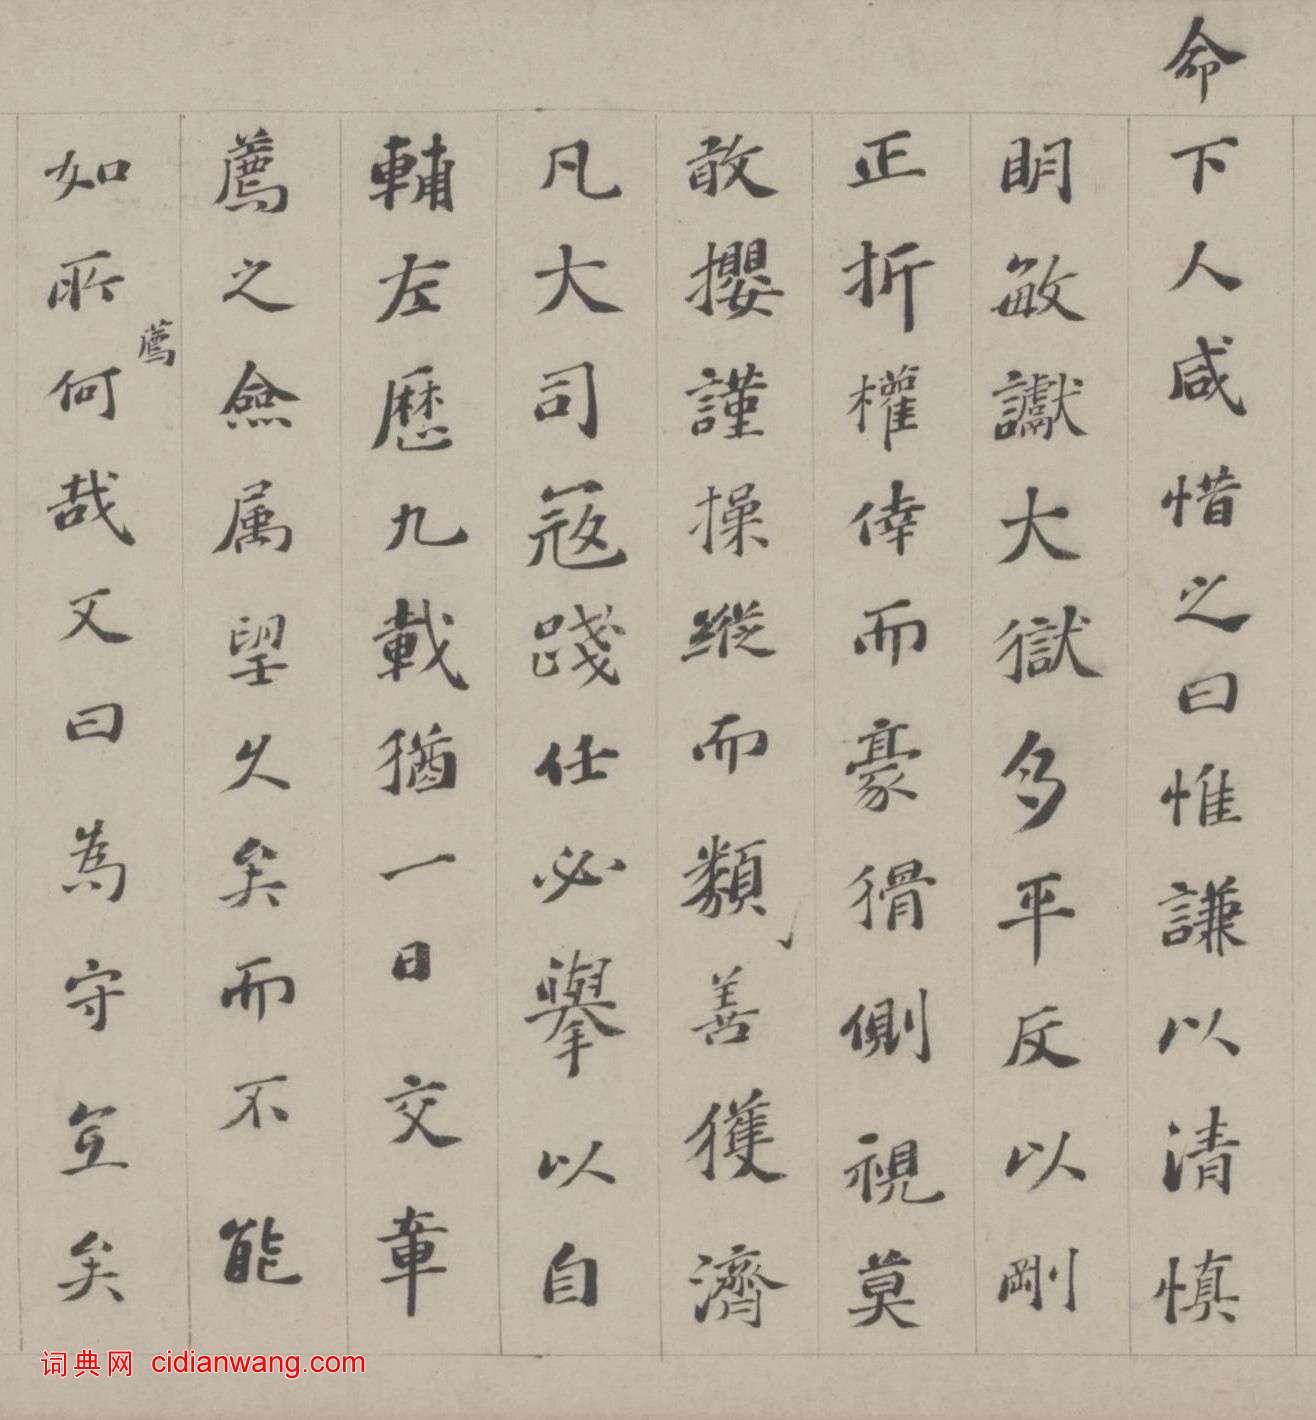 命下人咸惜之曰惟謙以清慎
明敏讞大獄多平反以剛
正折權倖而豪猾側視莫
敢攖謹操縱而類善獲濟
凡大司寇踐仕必舉以自
輔左歷九載猶一日交章
薦之僉属望久矣而不能
如所薦何哉又曰為守宜矣
词典网 cidianwang.com